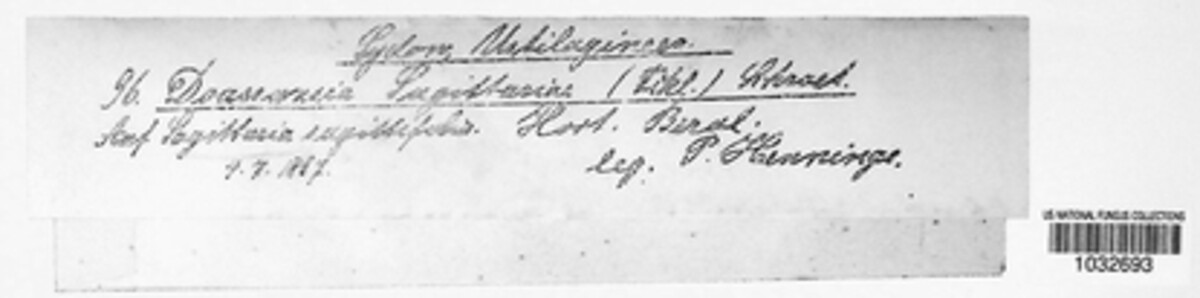 Sydow, Ustilagineen.
96. Doassansia Sagittariae (Fckl.) Schroet.
Auf Sagittaria sagittifolia. Hort. Berol.
9.7.1887.
leg. P. Hennings.
US NATIONAL FUNGUS COLLECTIONS
1032693